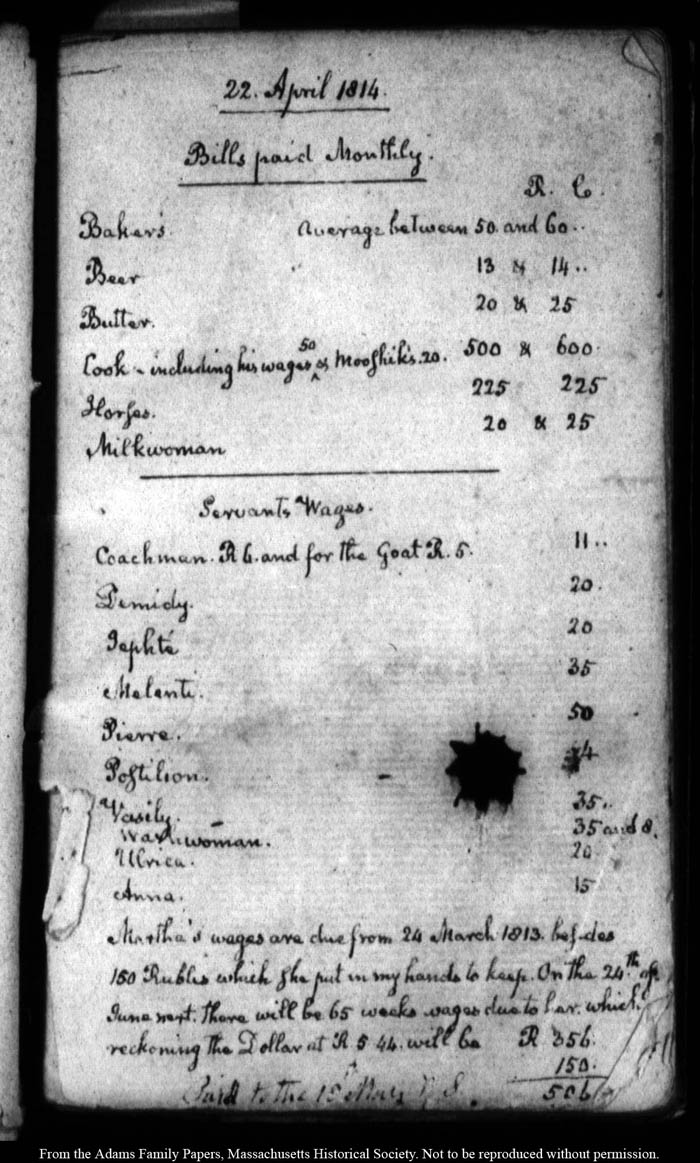 22. April 1814.
Bills paid Monthly.
R. C.
Baker's. Average between 50. and 60..
Beer 13 & 14..
Butter. 20 & 25
Cook - including his wages 50 & Mooshik's. 20. 500 & 600.
Horses. 225 225
Milkwoman 20 & 25
Servants Wages.
Coachman. R 6. and for the Goat R. 5. 11..
Demidy. 20.
Jephté 20
Melanti. 35
Pierre. 50
Postilion. 4
Vasily. 35..
Washwoman. 35 and 8.
Ulrica. 20
Anna. 15
Martha's wages are due from 24 March 1813. besides
150 Rubles which she put in my hands to keep. On the 24th of
June next. there will be 65 weeks wages due to her. which
reckoning the Dollar at R 5 44. will be R 356.
150.
Paid to the 15 506
From the Adams Family Papers, Massachusetts Historical Society. Not to be reproduced without permission.